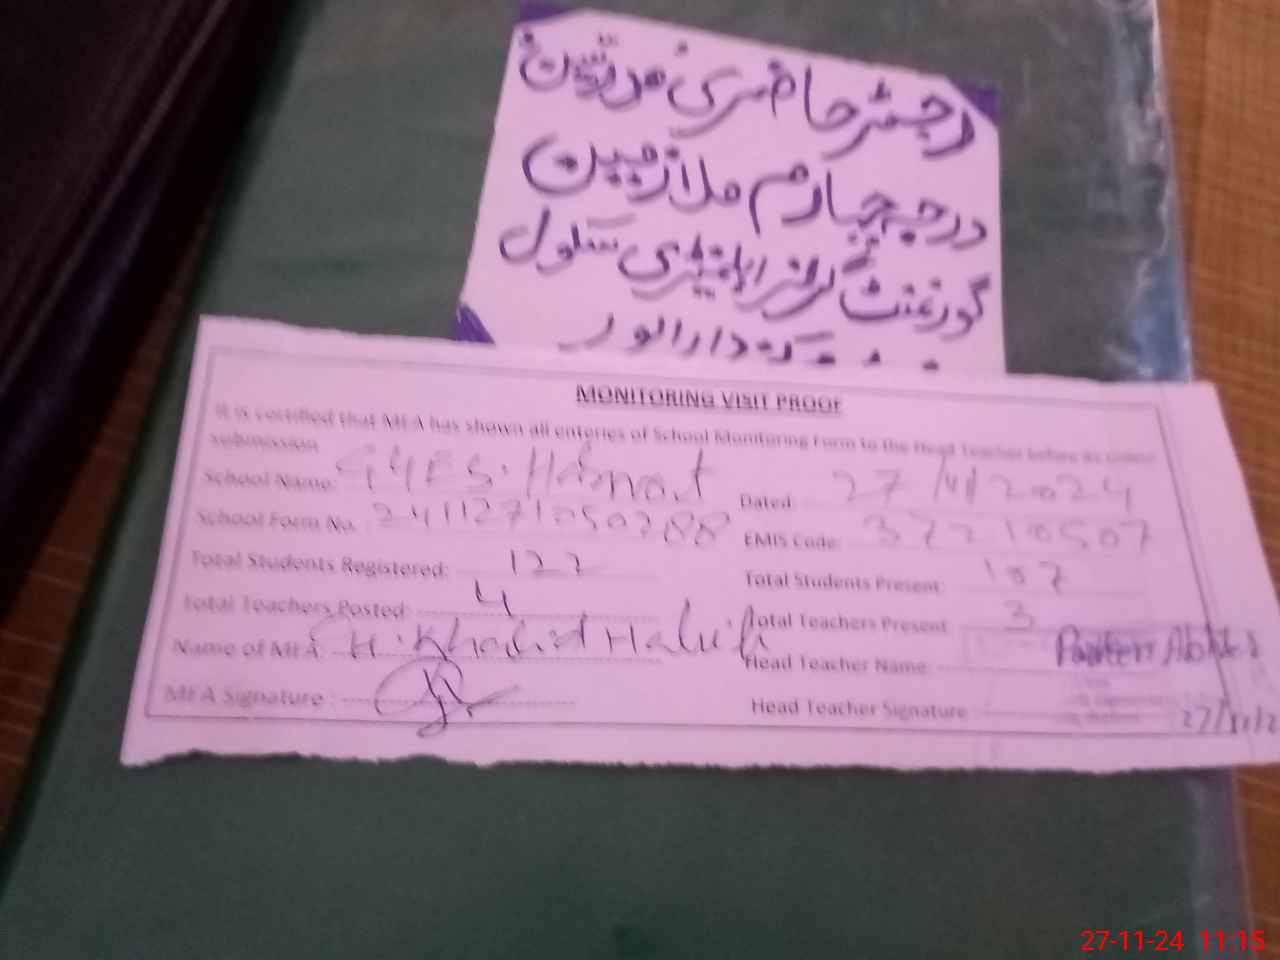 رجسٹر حاضری مدرسین
درجہ چہارم ملازمین
گورنمنٹ گرلز ایلیمنٹری سکول
دارالور
MONITORING VISIT PROOF
It is certified that MEA has shown all enteries of School Monitoring Form to the Head Teacher before its online
submission
School Name: GGES. Dated: 27/11/2024
School Form No. 2411271050288 EMIS Code: 37210507
Total Students Registered: 122 Total Students Present 107
Total Teachers Posted: 4 Total Teachers Present 3
Name of MEA: CH. Khalid Head Teacher Name:
MEA Signature: Head Teacher Signature
27/11/2
27-11-24 11:15